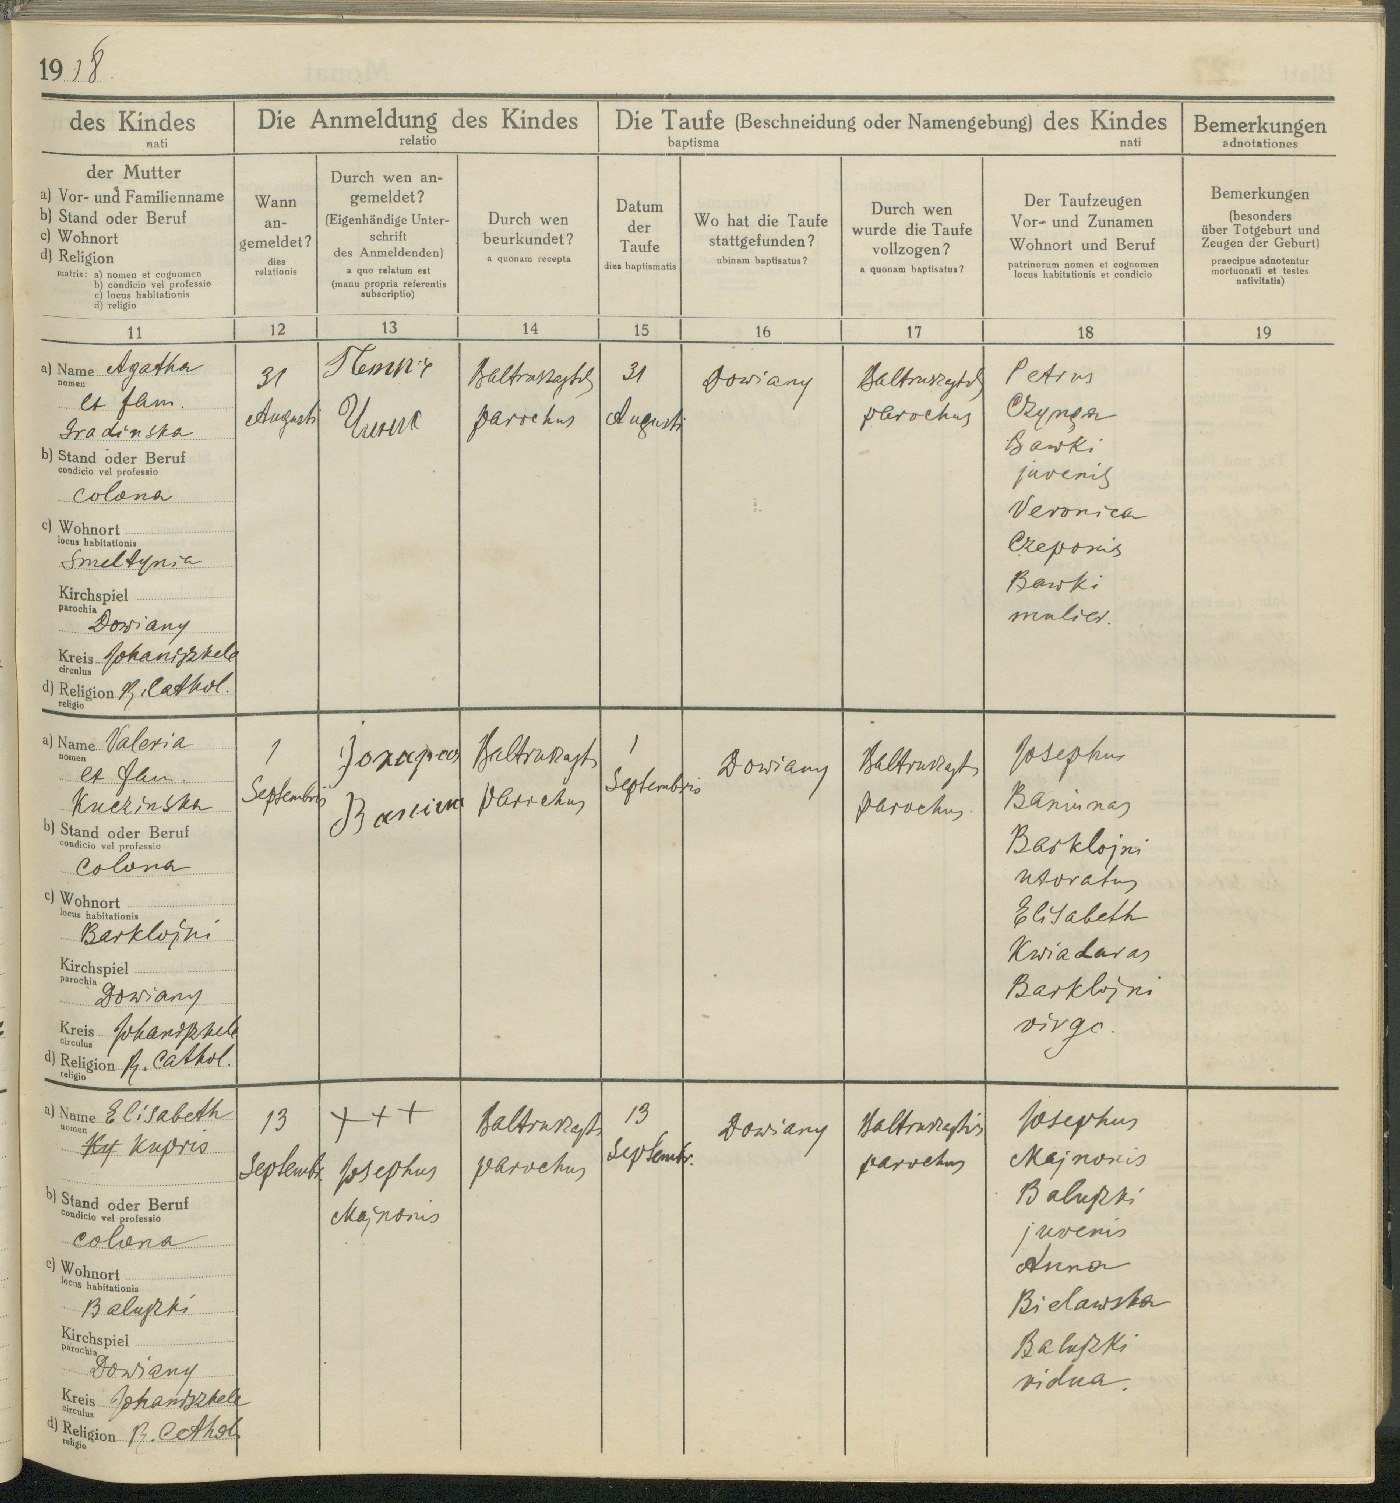 1918
des Kindes
nati
Die Anmeldung des Kindes
relatio
Die Taufe (Beschneidung oder Namengebung) des Kindes
baptisma nati
Bemerkungen
adnotationes
der Mutter
a) Vor- und Familienname
b) Stand oder Beruf
c) Wohnort
d) Religion
matris: a) nomen et cognomen
b) condicio vel professio
c) locus habitationis
d) religio
Wann
an-
gemeldet?
dies
relationis
Durch wen an-
gemeldet?
(Eigenhändige Unter-
schrift
des Anmeldenden)
a quo relatum est
(manu propria referentis
subscriptio)
Durch wen
beurkundet?
a quonam recepta
Datum
der
Taufe
dies baptismatis
Wo hat die Taufe
stattgefunden?
ubinam baptisatus?
Durch wen
wurde die Taufe
vollzogen?
a quonam baptisatus?
Der Taufzeugen
Vor- und Zunamen
Wohnort und Beruf
patrinorum nomen et cognomen
locus habitationis et condicio
Bemerkungen
(besonders
über Totgeburt und
Zeugen der Geburt)
praecipue adnotentur
mortuonati et testes
nativitatis)
11 12 13 14 15 16 17 18 19
a) Name Agatha
nomen
et fam.
Gradinska
b) Stand oder Beruf
condicio vel professio
colona
c) Wohnort
locus habitationis
Smeltynia
Kirchspiel
parochia
Dowiany
Kreis Johaniszkele
circulus
d) Religion R. Cathol.
religio
31
Augusti
parochus
31
Augusti
Dowiany
parochus
Petrus
Czynga
Bawki
juvenis
Veronica
Czeponis
Bawki
mulier.
a) Name Valeria
nomen
et fam.
Kuczinska
b) Stand oder Beruf
condicio vel professio
colona
c) Wohnort
locus habitationis
Barklojni
Kirchspiel
parochia
Dowiany
Kreis Johaniszkele
circulus
d) Religion R. Cathol.
religio
1
Septembris
Baltruszajts
parochus
1
Septembris
Dowiany
Baltruszajts
parochus.
Josephus
Baniunas
Barklojni
uxoratus
Elisabeth
Kwiadaras
Barklojni
virgo.
a) Name Elisabeth
nomen
Ky Kupris
b) Stand oder Beruf
condicio vel professio
colona
c) Wohnort
locus habitationis
Baluszki
Kirchspiel
parochia
Dowiany
Kreis Johaniszkele
circulus
d) Religion R. Cathol.
religio
13
Septembr.
+ + +
Josephus
Majnonis
Baltruszajts
parochus
13
Septembr.
Dowiany
Baltruszajtis
parochus
Josephus
Majnonis
Baluszki
juvenis
Anna
Bielawska
Baluszki
vidua.